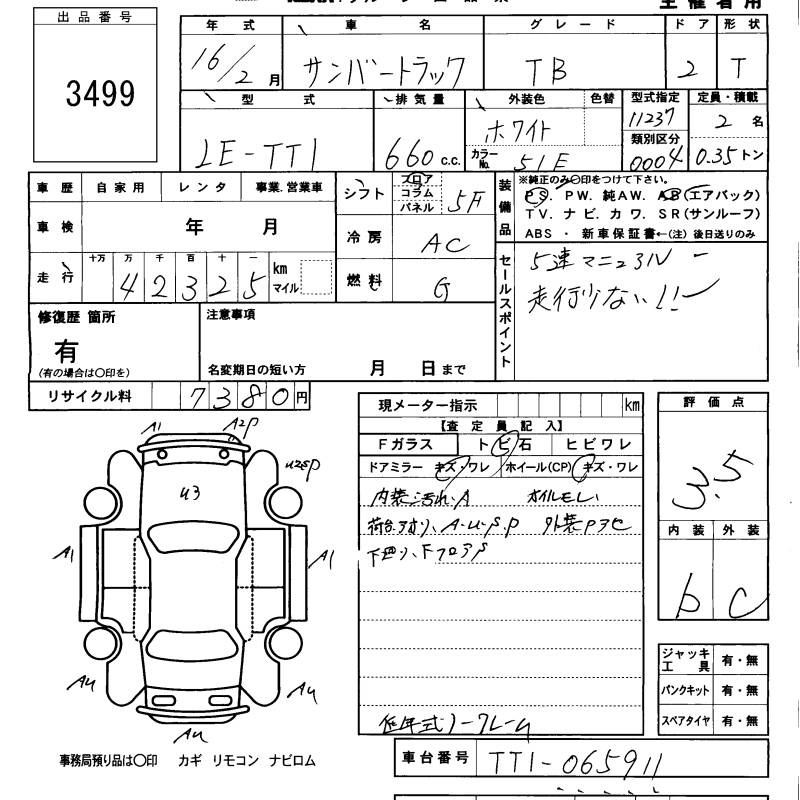 主催者用
出品番号
3499
年式 車名 グレード ドア 形状
16/2月 サンバートラック TB 2 T
型式 排気量 外装色 色替 型式指定 定員・積載
LE-TT1 660 c.c. ホワイト 11237 2名
カラーNo. 51E 類別区分 0004 0.35トン
車歴 自家用 レンタ 事業.営業車
車検 年 月
走行 十万 万 千 百 十 一 km マイル
4 2 3 2 5
シフト フロア コラム パネル 5F
冷房 AC
燃料 G
装備品
※純正のみ○印をつけて下さい。
PS. PW. 純AW. AB(エアバック)
TV. ナビ. カワ. SR(サンルーフ)
ABS ・ 新車保証書←(注) 後日送りのみ
セールスポイント
5速マニュアル
走行少ない!!
修復歴 箇所
有
(有の場合は○印を)
注意事項
名変期日の短い方 月 日まで
リサイクル料 7380円
現メーター指示 km
【査定員記入】
Fガラス トビ石 ヒビワレ
ドアミラー キズ・ワレ ホイール(CP) キズ・ワレ
内装汚れ、A オイルモレ
荷台アオリ、A.U.S.P
下廻り、FフロアS
低年式ノークレーム
評価点
3.5
内装 外装
b C
ジャッキ工具 有・無
パンクキット 有・無
スペアタイヤ 有・無
A1 A2P
U2SP
U3
A1 A1
AU AU
AU
事務局預り品は○印 カギ リモコン ナビロム
車台番号 TT1-065911